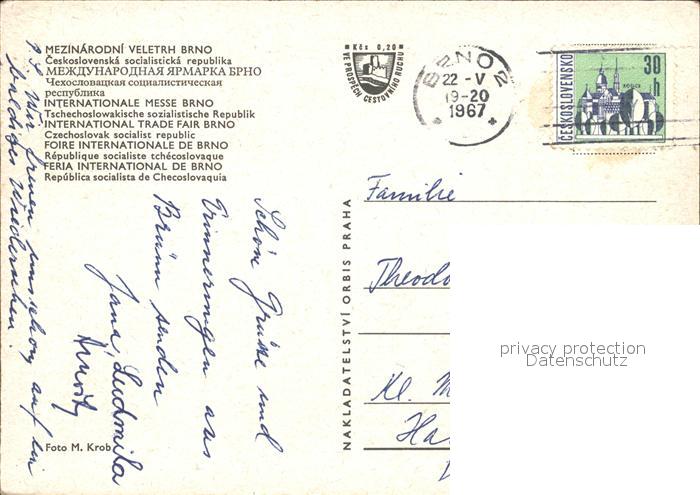 MEZINÁRODNÍ VELETRH BRNO
Československá socialistická republika
МЕЖДУНАРОДНАЯ ЯРМАРКА БРНО
Чехословацкая социалистическая
республика
INTERNATIONALE MESSE BRNO
Tschechoslowakische sozialistische Republik
INTERNATIONAL TRADE FAIR BRNO
Czechoslovak socialist republic
FOIRE INTERNATIONALE DE BRNO
République socialiste tchécoslovaque
FERIA INTERNATIONAL DE BRNO
República socialista de Checoslovaquia
Kčs 0,20
VE PROSPĚCH CESTOVNÍHO RUCHU
BRNO 2
22 -V
19-20
1967
ČESKOSLOVENSKO
30 h
KOŠICE
Familie
Theodo
Kl. M
Ha
privacy protection
Datenschutz
NAKLADATELSTVÍ ORBIS PRAHA
Schöne Grüsse und
Erinnerungen aus
Brünn senden
Jana, Ludmila
P.S. Wir freuen uns schon auf ein
baldiges Wiedersehen.
Foto M. Krob